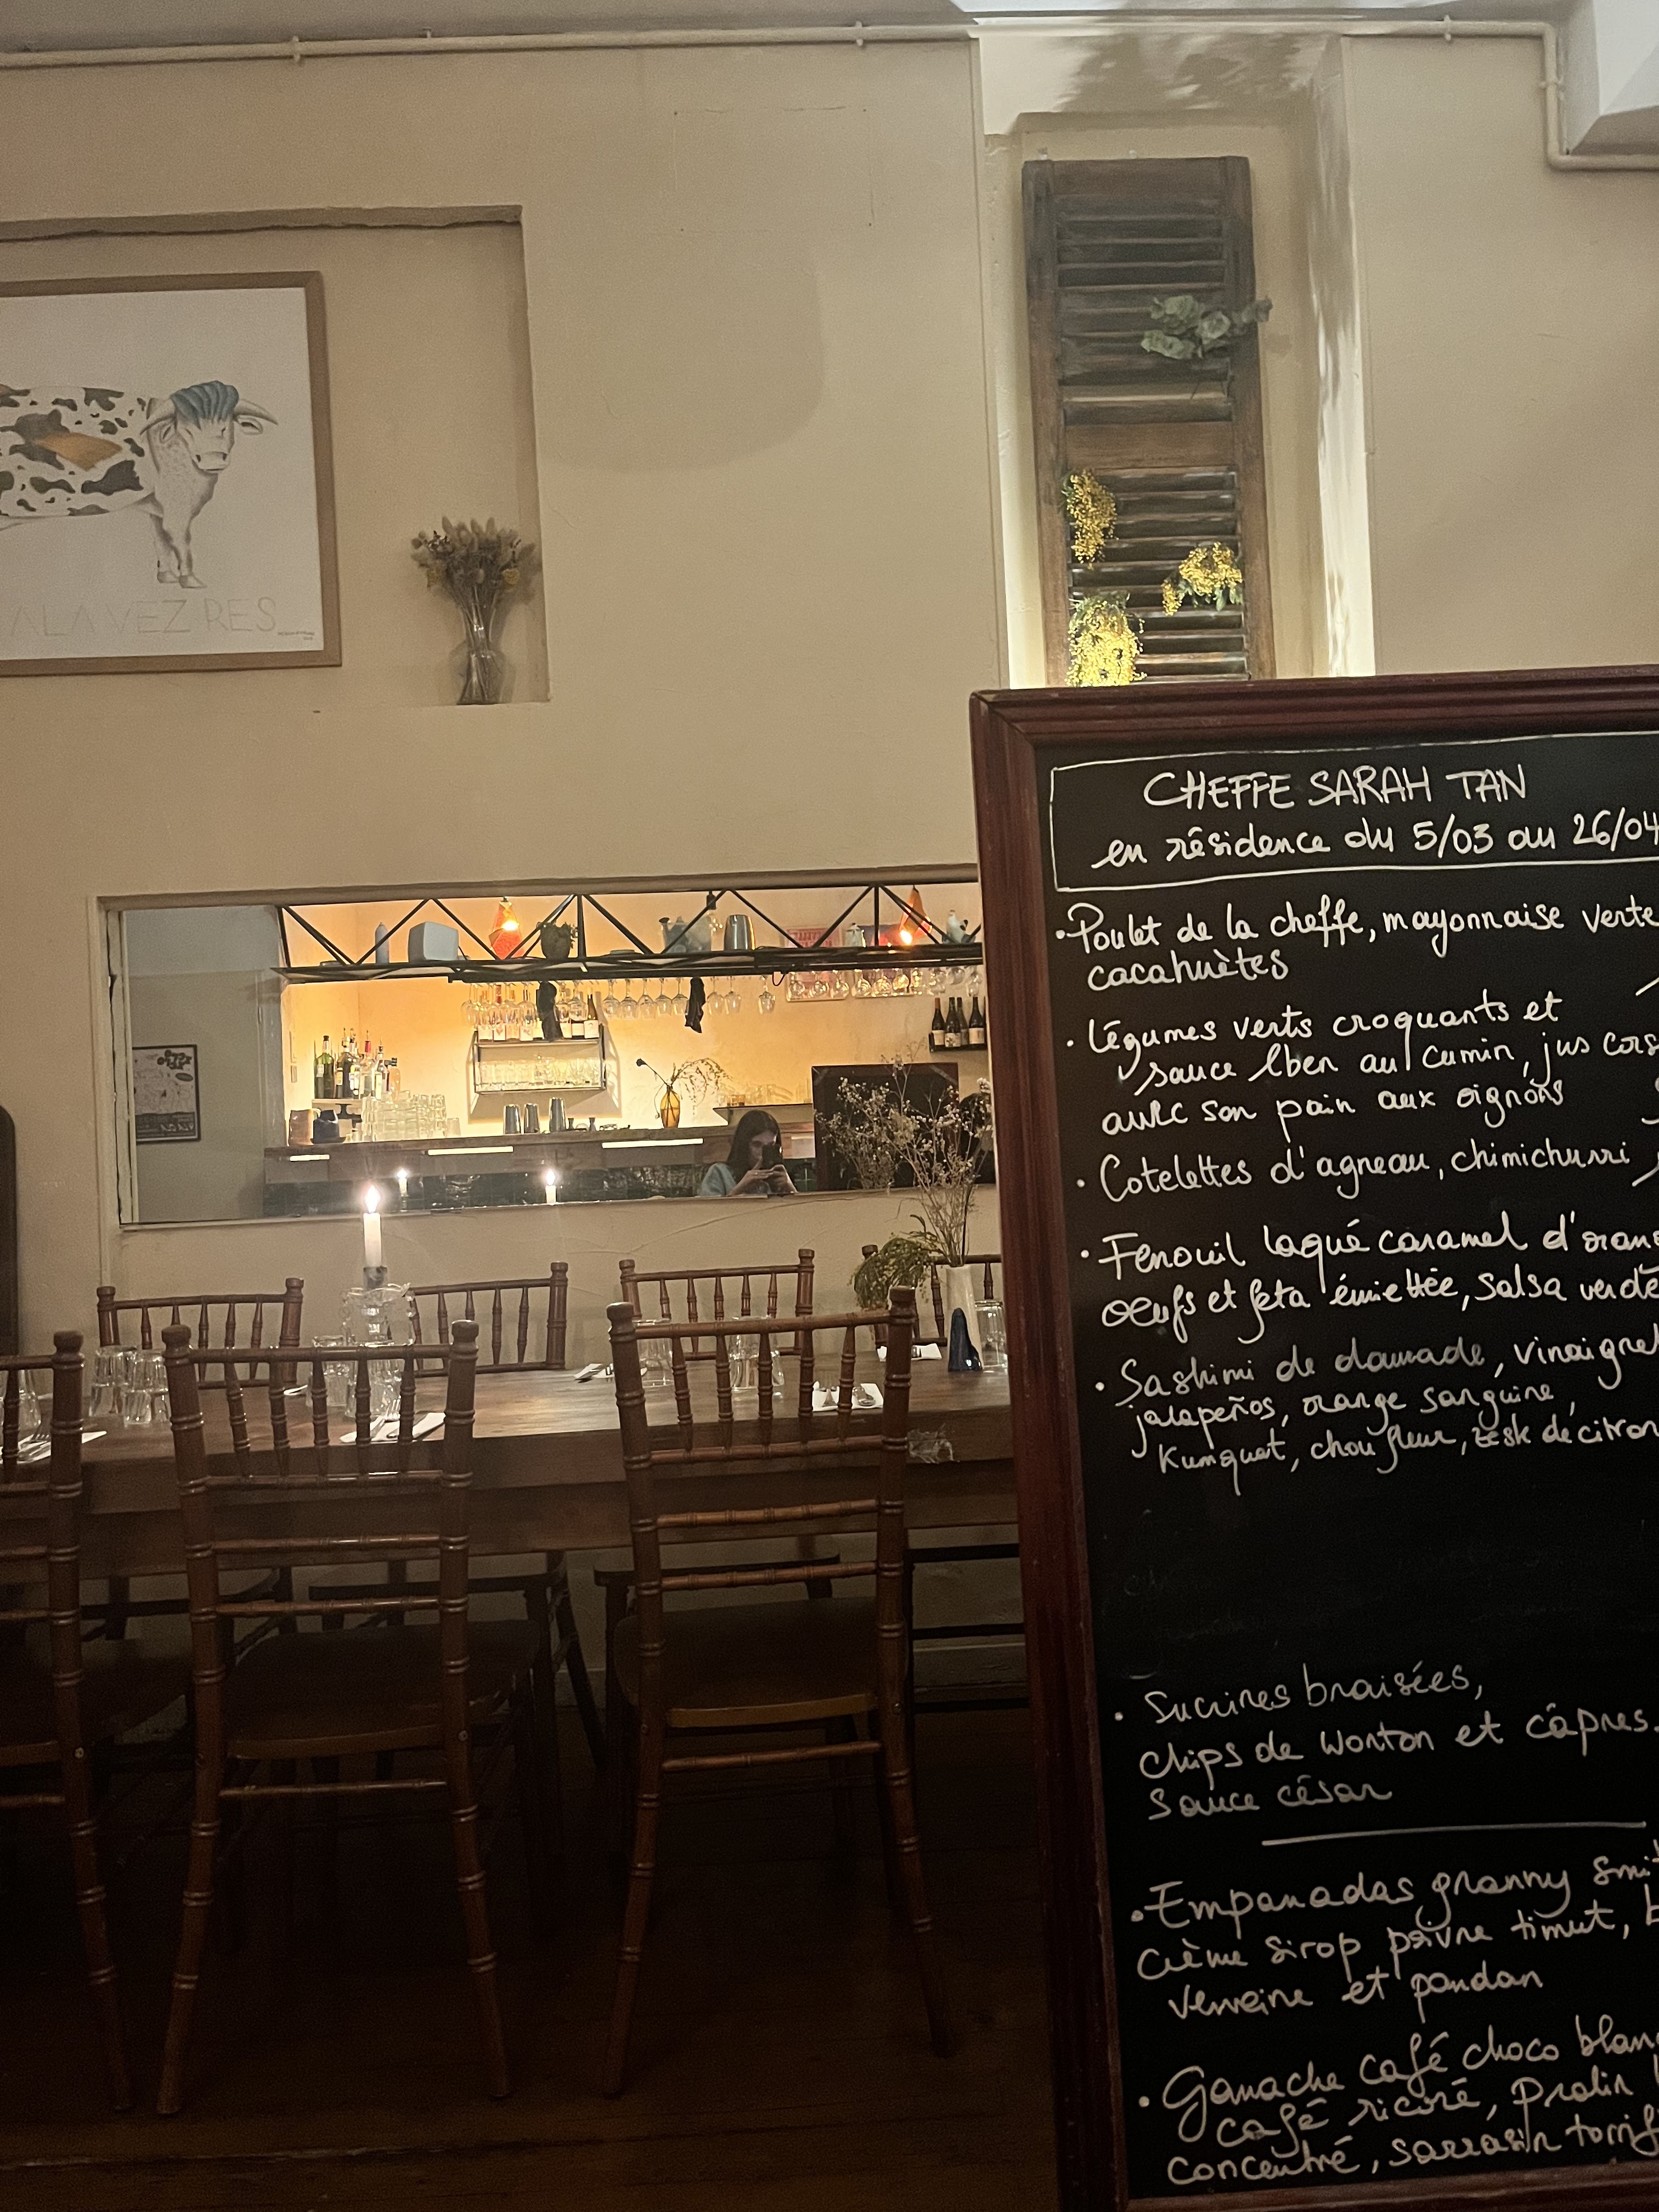 ALAVEZ RES
CHEFFE SARAH TAN
en résidence du 5/03 au 26/04
• Poulet de la cheffe, mayonnaise verte
cacahuètes
• Légumes verts croquants et
sauce lben au cumin, jus cors
avec son pain aux oignons
• Cotelettes d'agneau, chimichurri
• Fenouil laqué caramel d'oran
oeufs et feta émiettée, salsa verde
• Sashimi de daurade, vinaigret
jalapeños, orange sanguine,
Kumquat, chou fleur, zesk de citron
• Sucrines braisées,
chips de wonton et câpres.
Sauce césar
• Empanadas granny smit
crème sirop poivre timut, b
verveine et pandan
• Ganache café choco blan
café ricoré, pralin
concentré, sarrasin torrif